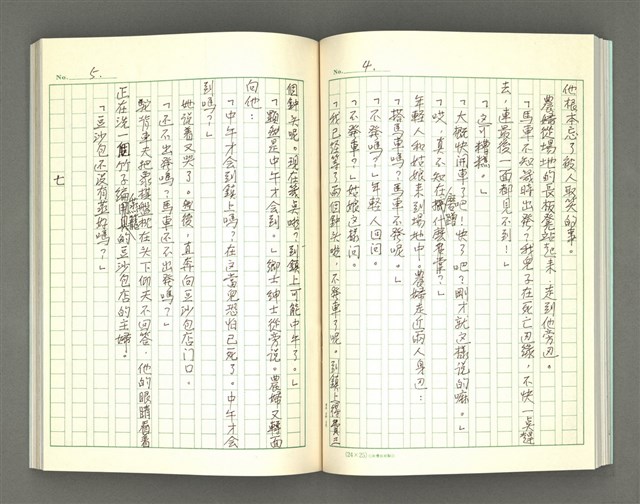 No. 4.
他根本忘了被人取笑的事。
農婦從場地的長板凳站起來,走到他旁邊。
「馬車不知幾時出發?我兒子在死亡邊緣,不快一点趕
去,連最後一面都見不到!」
「這可糟糕。」
「大概快開車了吧!快了吧?剛才就這樣說的嘛。」
「哎,真不知在磨蹭什麼
年輕人和姑娘來到場地中。農婦走近兩人身边:
「搭馬車嗎?馬車不發呢。」
「不發嗎?」年輕人回問。
「不發車?」姑娘這樣問。
「我已經等了兩個鐘头啦,不發車了呢。到鎮上
(24×25)
No. 5.
個鐘头呢。現在幾点啦?到鎮上可能中午了。」
「顯然是中午才會到。」鄉士紳士從旁說。農婦又轉面
向他:
「中午才會到鎮上嗎?在這當兒恐怕已死了。中午才會
到嗎?」
她說着又哭了。然後,直奔向豆沙包店門口。
「还不出發嗎?馬車还不出發嗎?」
駝背車夫把象棋盤枕在头下仰天不回答,他的眼睛看着
正在洗一個竹子編蒸籠的豆沙包店的主婦。
「豆沙包还沒有蒸好嗎?」
七